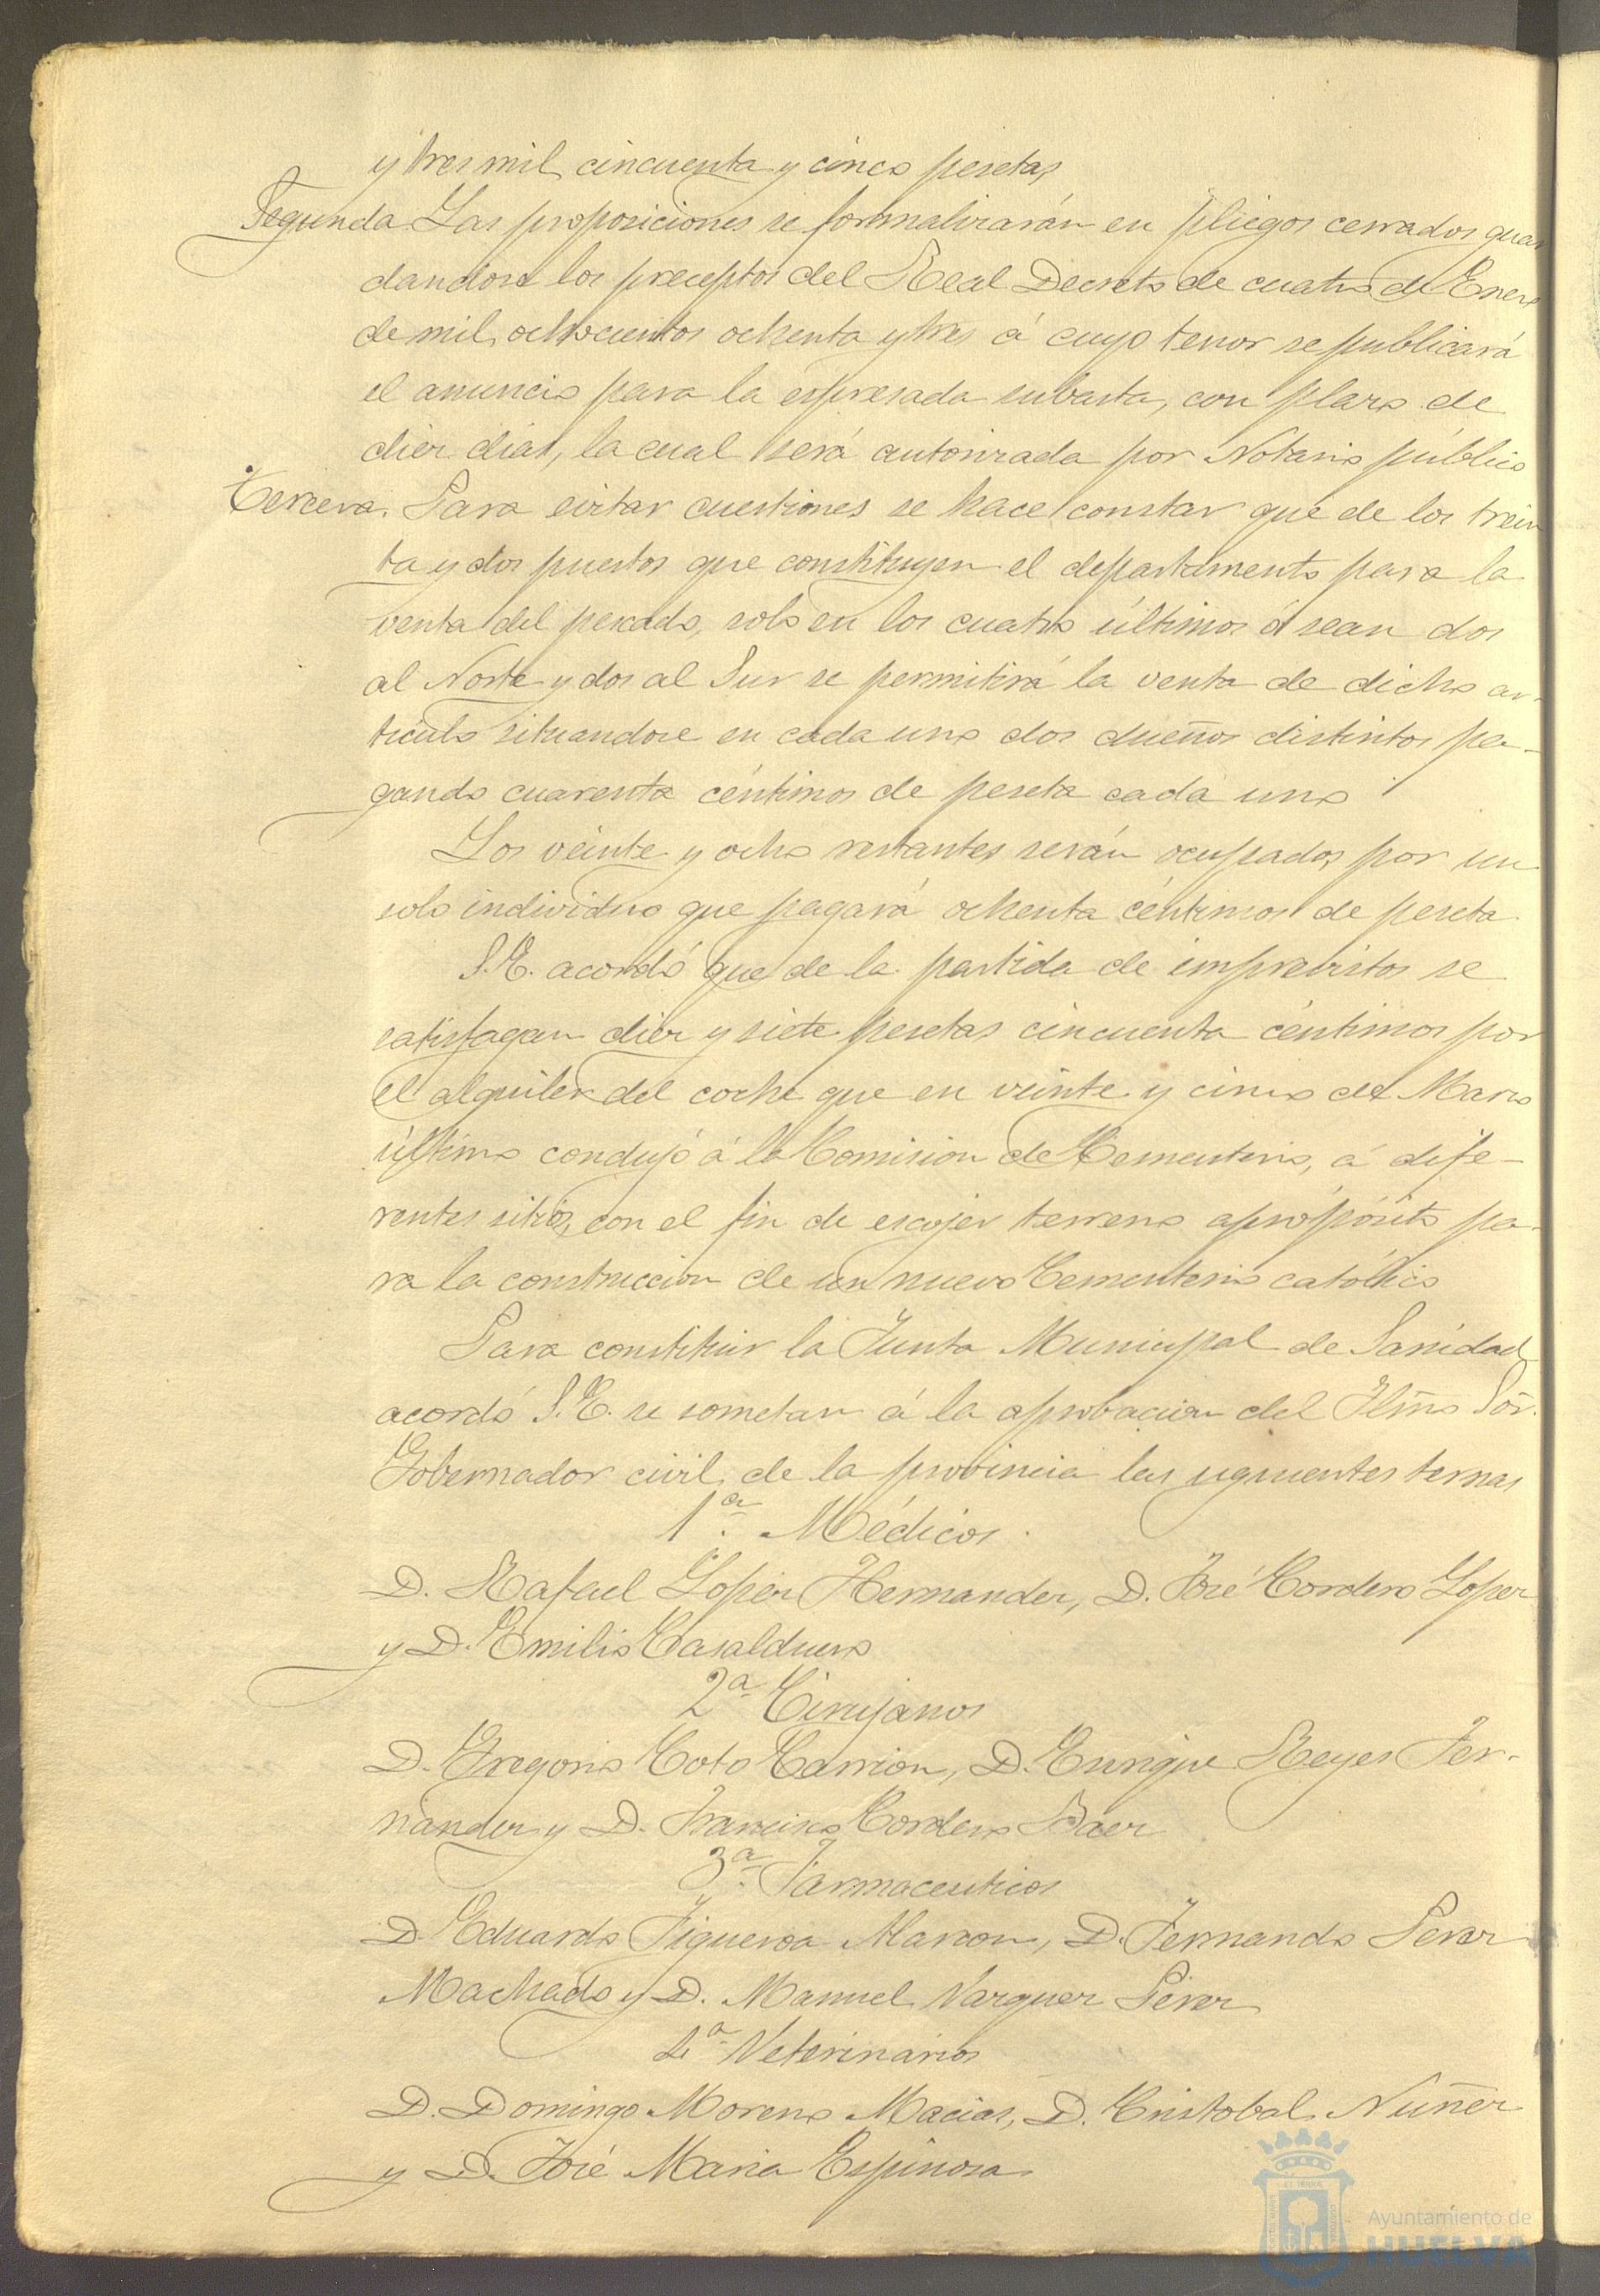 y tres mil cincuenta y cinco pesetas
Segunda Las proposiciones se formalizarán en pliegos cerrados guar
dandose los preceptos del Real Decreto de cuatro de Enero
de mil ochocientos ochenta y tres á cuyo tenor se publicará
el anuncio para la espresada subasta, con plazo de
diez dias, la cual será autorizada por Notario público
Tercera. Para evitar cuestiones se hace constar que de los trein
ta y dos puestos que constituyen el departamento para la
venta del pescado, solo en los cuatro últimos ó sean dos
al Norte y dos al Sur se permitirá la venta de dicho ar-
tículo situandose en cada uno dos dueños distintos pa-
gando cuarenta céntimos de peseta cada uno
Los veinte y ocho restantes serán ocupados por un
solo individuo que pagará ochenta céntimos de peseta
S.E. acordó que de la partida de imprevistos se
satisfagan diez y siete pesetas cincuenta céntimos por
el alquiler del coche que en veinte y cinco de Marzo
último condujó á la Comision de Cementerio, á dife-
rentes sitios, con el fin de escojer terreno apropósito pa-
ra la construccion de un nuevo Cementerio católico
Para constituir la Junta Municipal de Sanidad
acordó S.E. se sometan á la aprobacion del Ilmo Sor.
Gobernador civil de la provincia las siguientes ternas
1ª. Médicos.
D. Rafael Lopez Hernandez, D. José Cordero Lopez
y D. Emilio Casalduero
2ª Cirujanos
D. Gregorio Coto Carrion, D. Enrique Reyes Fer-
nandez y D. Francisco Cordero Baez
3ª. Farmaceuticos
D. Eduardo Figueroa Alarcon, D. Fernando Perez
Machado y D. Manuel Vazquez Pérez
4ª Veterinarios
D. Domingo Moreno Macias, D. Cristobal Nuñez
y D. José Maria Espinosa
Ayuntamiento de
HUELVA